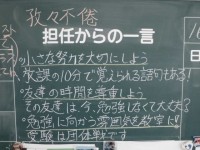 孜々不倦
担任からの一言
・小さな努力を大切にしよう
放課の10分で覚えられる語句もある!
・友達の時間を尊重しよう
その友達は今、勉強しなくて大丈夫?
・勉強に向かう雰囲気を教室に!!
受験は団体戦です
日